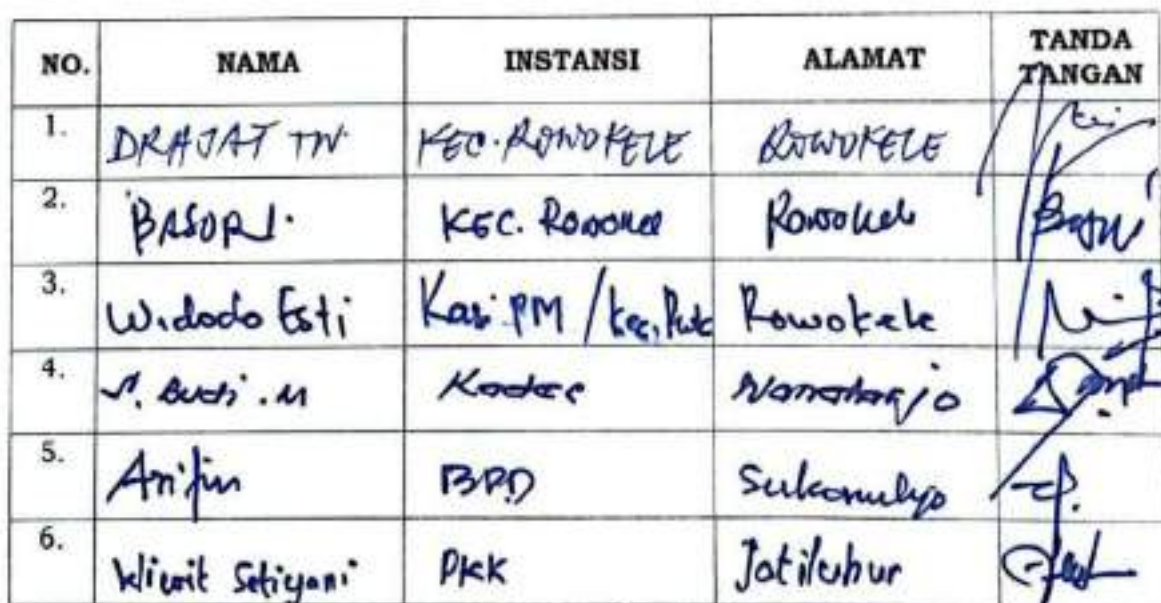 NO. NAMA INSTANSI ALAMAT TANDA TANGAN
1. DRAJAT TW KEC. ROWOKELE ROWOKELE
2. BASORI. KEC. Rowokel Rowokele
3. Widodo Esti Kasi PM / kec. Rowokele
4. Budi . M Kades Wonoharjo
5. Arifin BPD Sukomulyo
6. Kliwit Setiyani PKK Jatiluhur